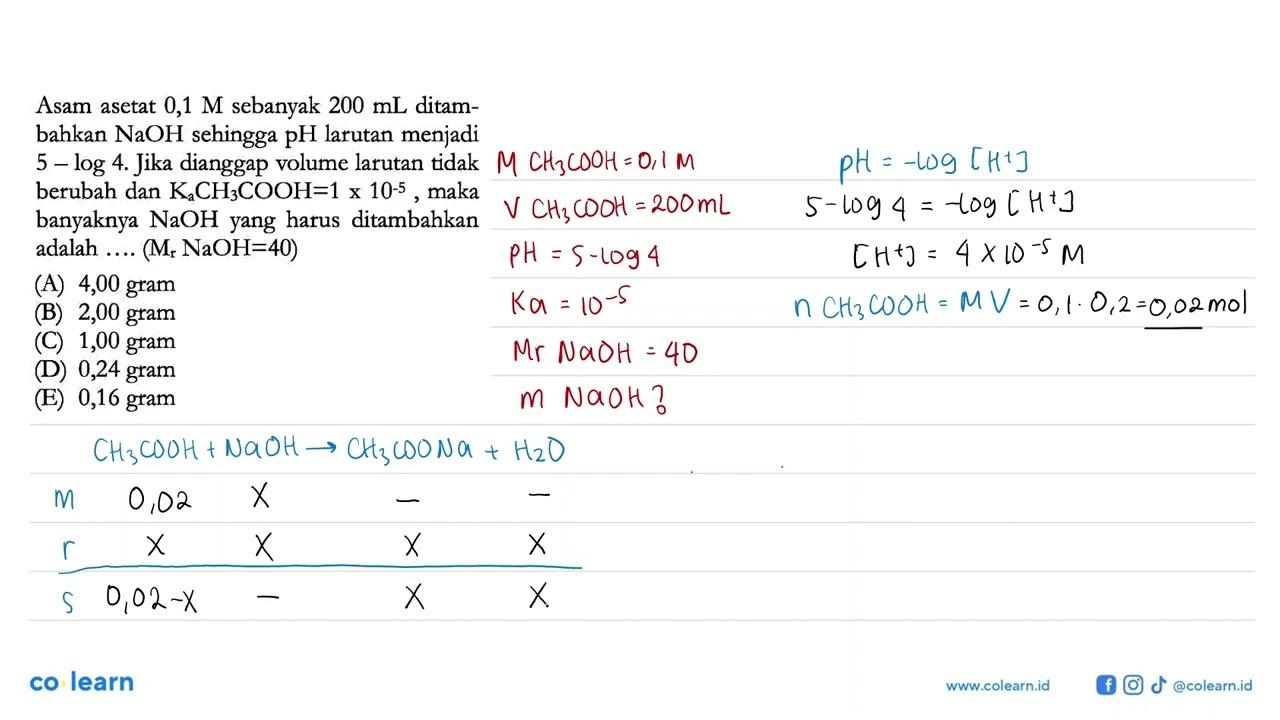 Asam asetat 0,1 M sebanyak 200 mL ditam-
bahkan NaOH sehingga pH larutan menjadi
5 – log 4. Jika dianggap volume larutan tidak
berubah dan KₐCH₃COOH=1 x 10⁻⁵ , maka
banyaknya NaOH yang harus ditambahkan
adalah .... (Mᵣ NaOH=40)
(A) 4,00 gram
(B) 2,00 gram
(C) 1,00 gram
(D) 0,24 gram
(E) 0,16 gram
M CH₃COOH = 0,1 M
V CH₃COOH = 200 mL
pH = 5-log 4
Ka = 10⁻⁵
Mr NaOH = 40
m NaOH?
pH = -log [H⁺]
5-log 4 = -log [H⁺]
[H⁺] = 4 × 10⁻⁵ M
n CH₃COOH = M V = 0,1 . 0,2 = 0,02 mol
CH₃COOH + NaOH → CH₃COONa + H₂O
m 0,02 x – –
r x x x x
s 0,02-x – x x
co learn
www.colearn.id @colearn.id